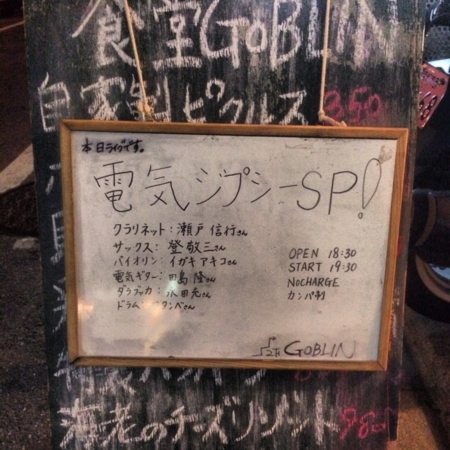 食堂GOBLIN
自家製ピクルス 350
本日ライブです。
電気ジプシーSP!
クラリネット:瀬戸 信行さん
サックス:登敬三さん
バイオリン:イガキアキコさん
電気ギター:田島 隆さん
ダラブッカ:永田充さん
ドラム
OPEN 18:30
START 19:30
NOCHARGE
カンパ制
GOBLIN
海老のチーズリゾット 980